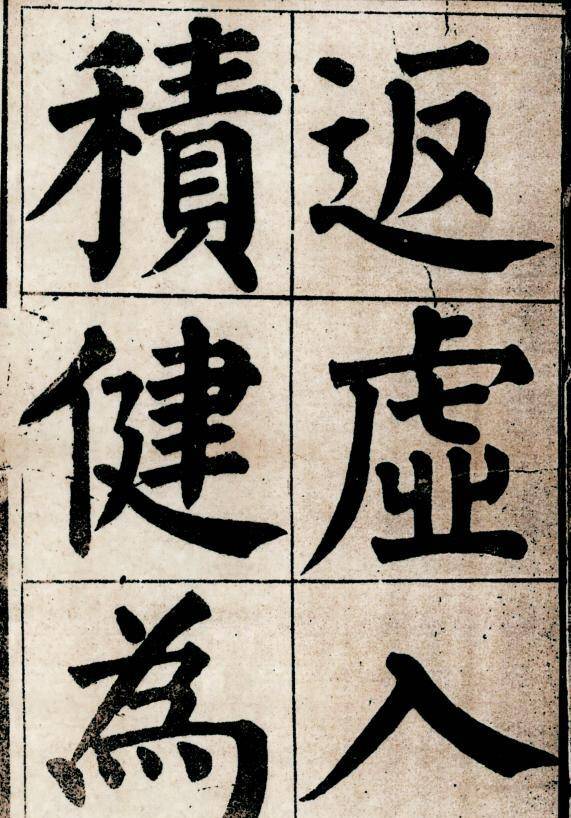 返虛入
積健為